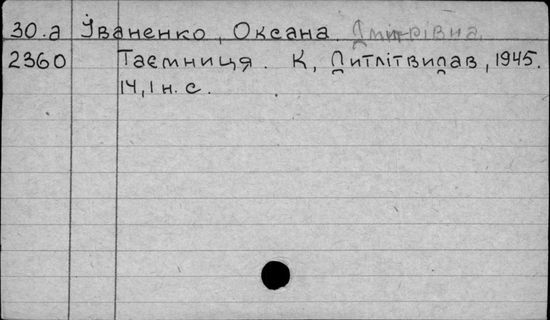 30.а Іваненко, Оксана Дмитрівна.
2360 Таємниця. К, Дитлітвидав, 1945.
14, 1 н. с.